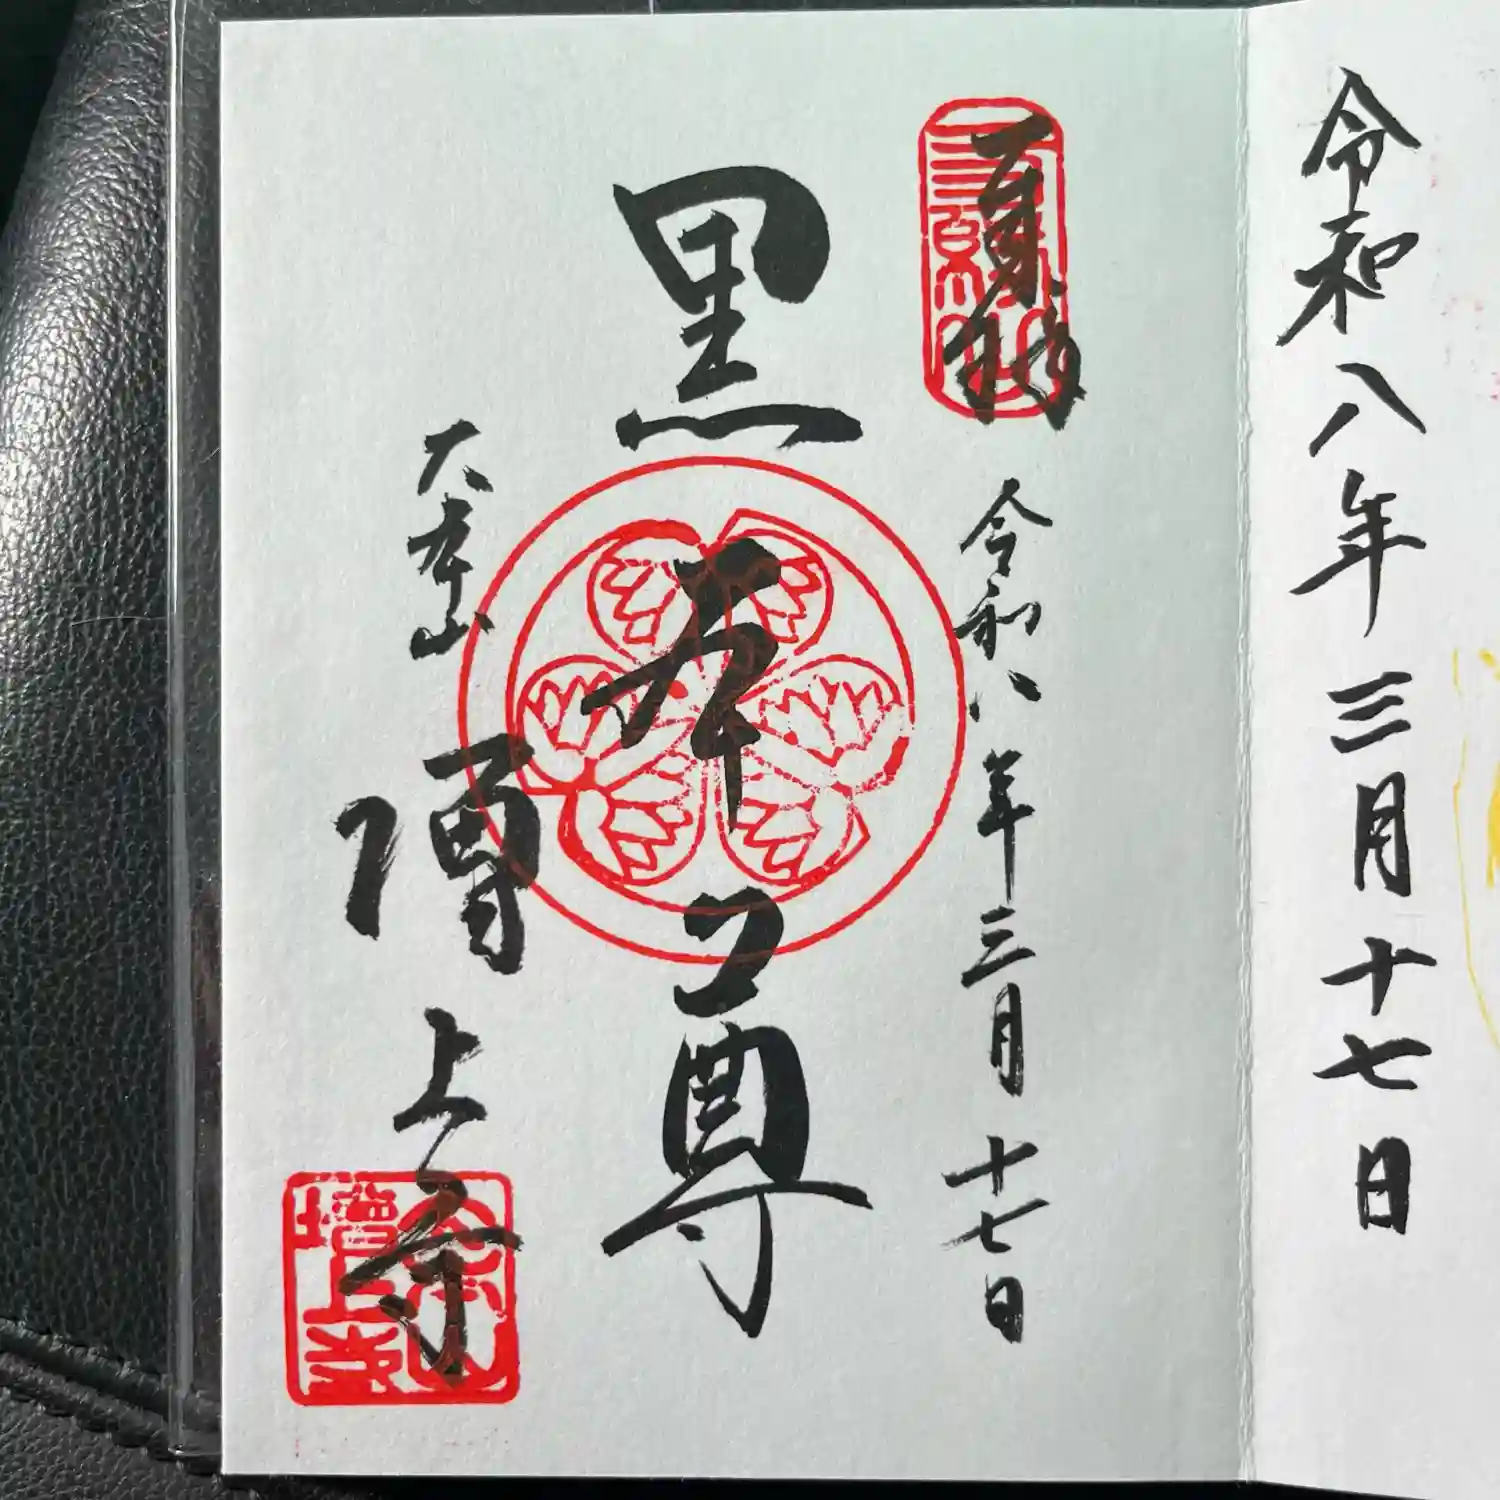 令和八年三月十七日
夏詣
三縁山
令和八年三月十七日
黒本尊
大本山
増上寺
大本山
増上寺